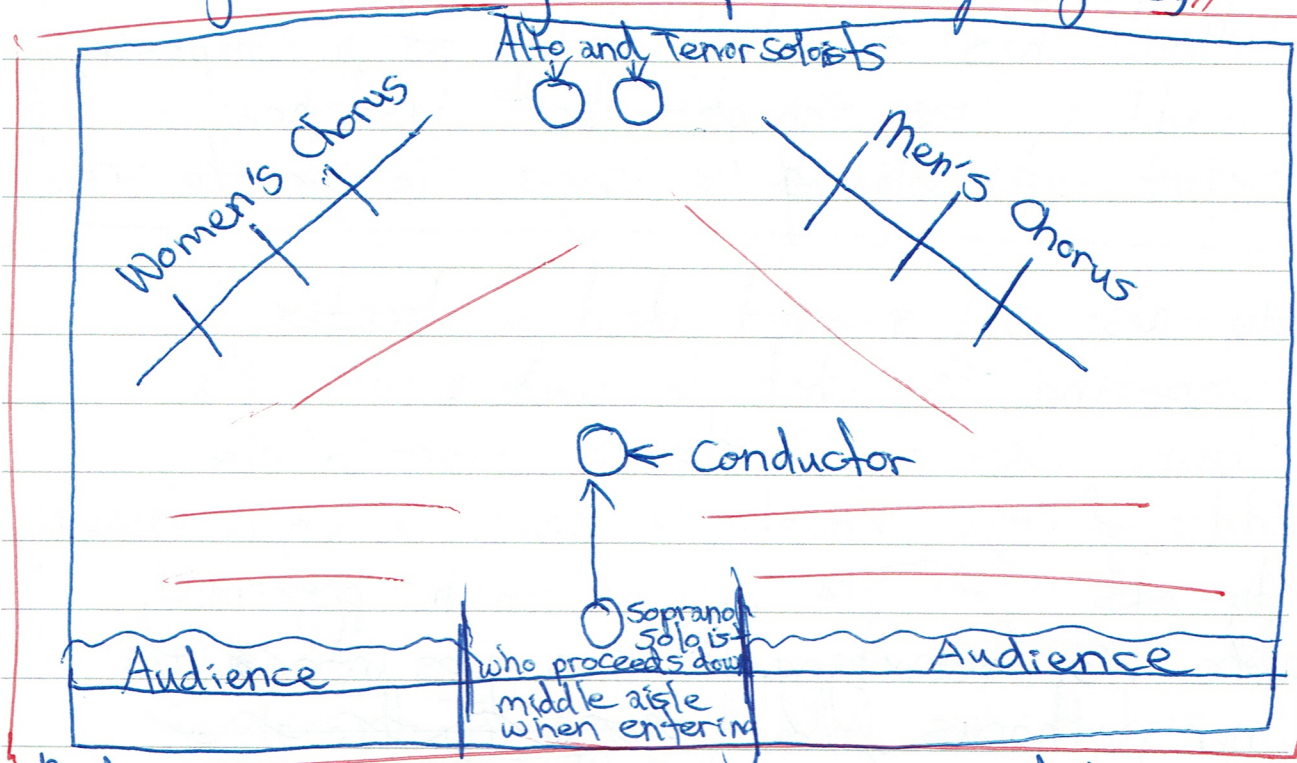 Alto and Tenor soloists
Women's Chorus
Men's Chorus
Conductor
Soprano
Soloist
who proceeds down
middle aisle
when entering
Audience
Audience